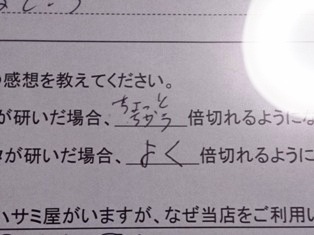 感想を教えてください。
が研いだ場合、ちょっとちがう倍切れるように
が研いだ場合、よく倍切れるように
ハサミ屋がいますが、なぜ当店をご利用い